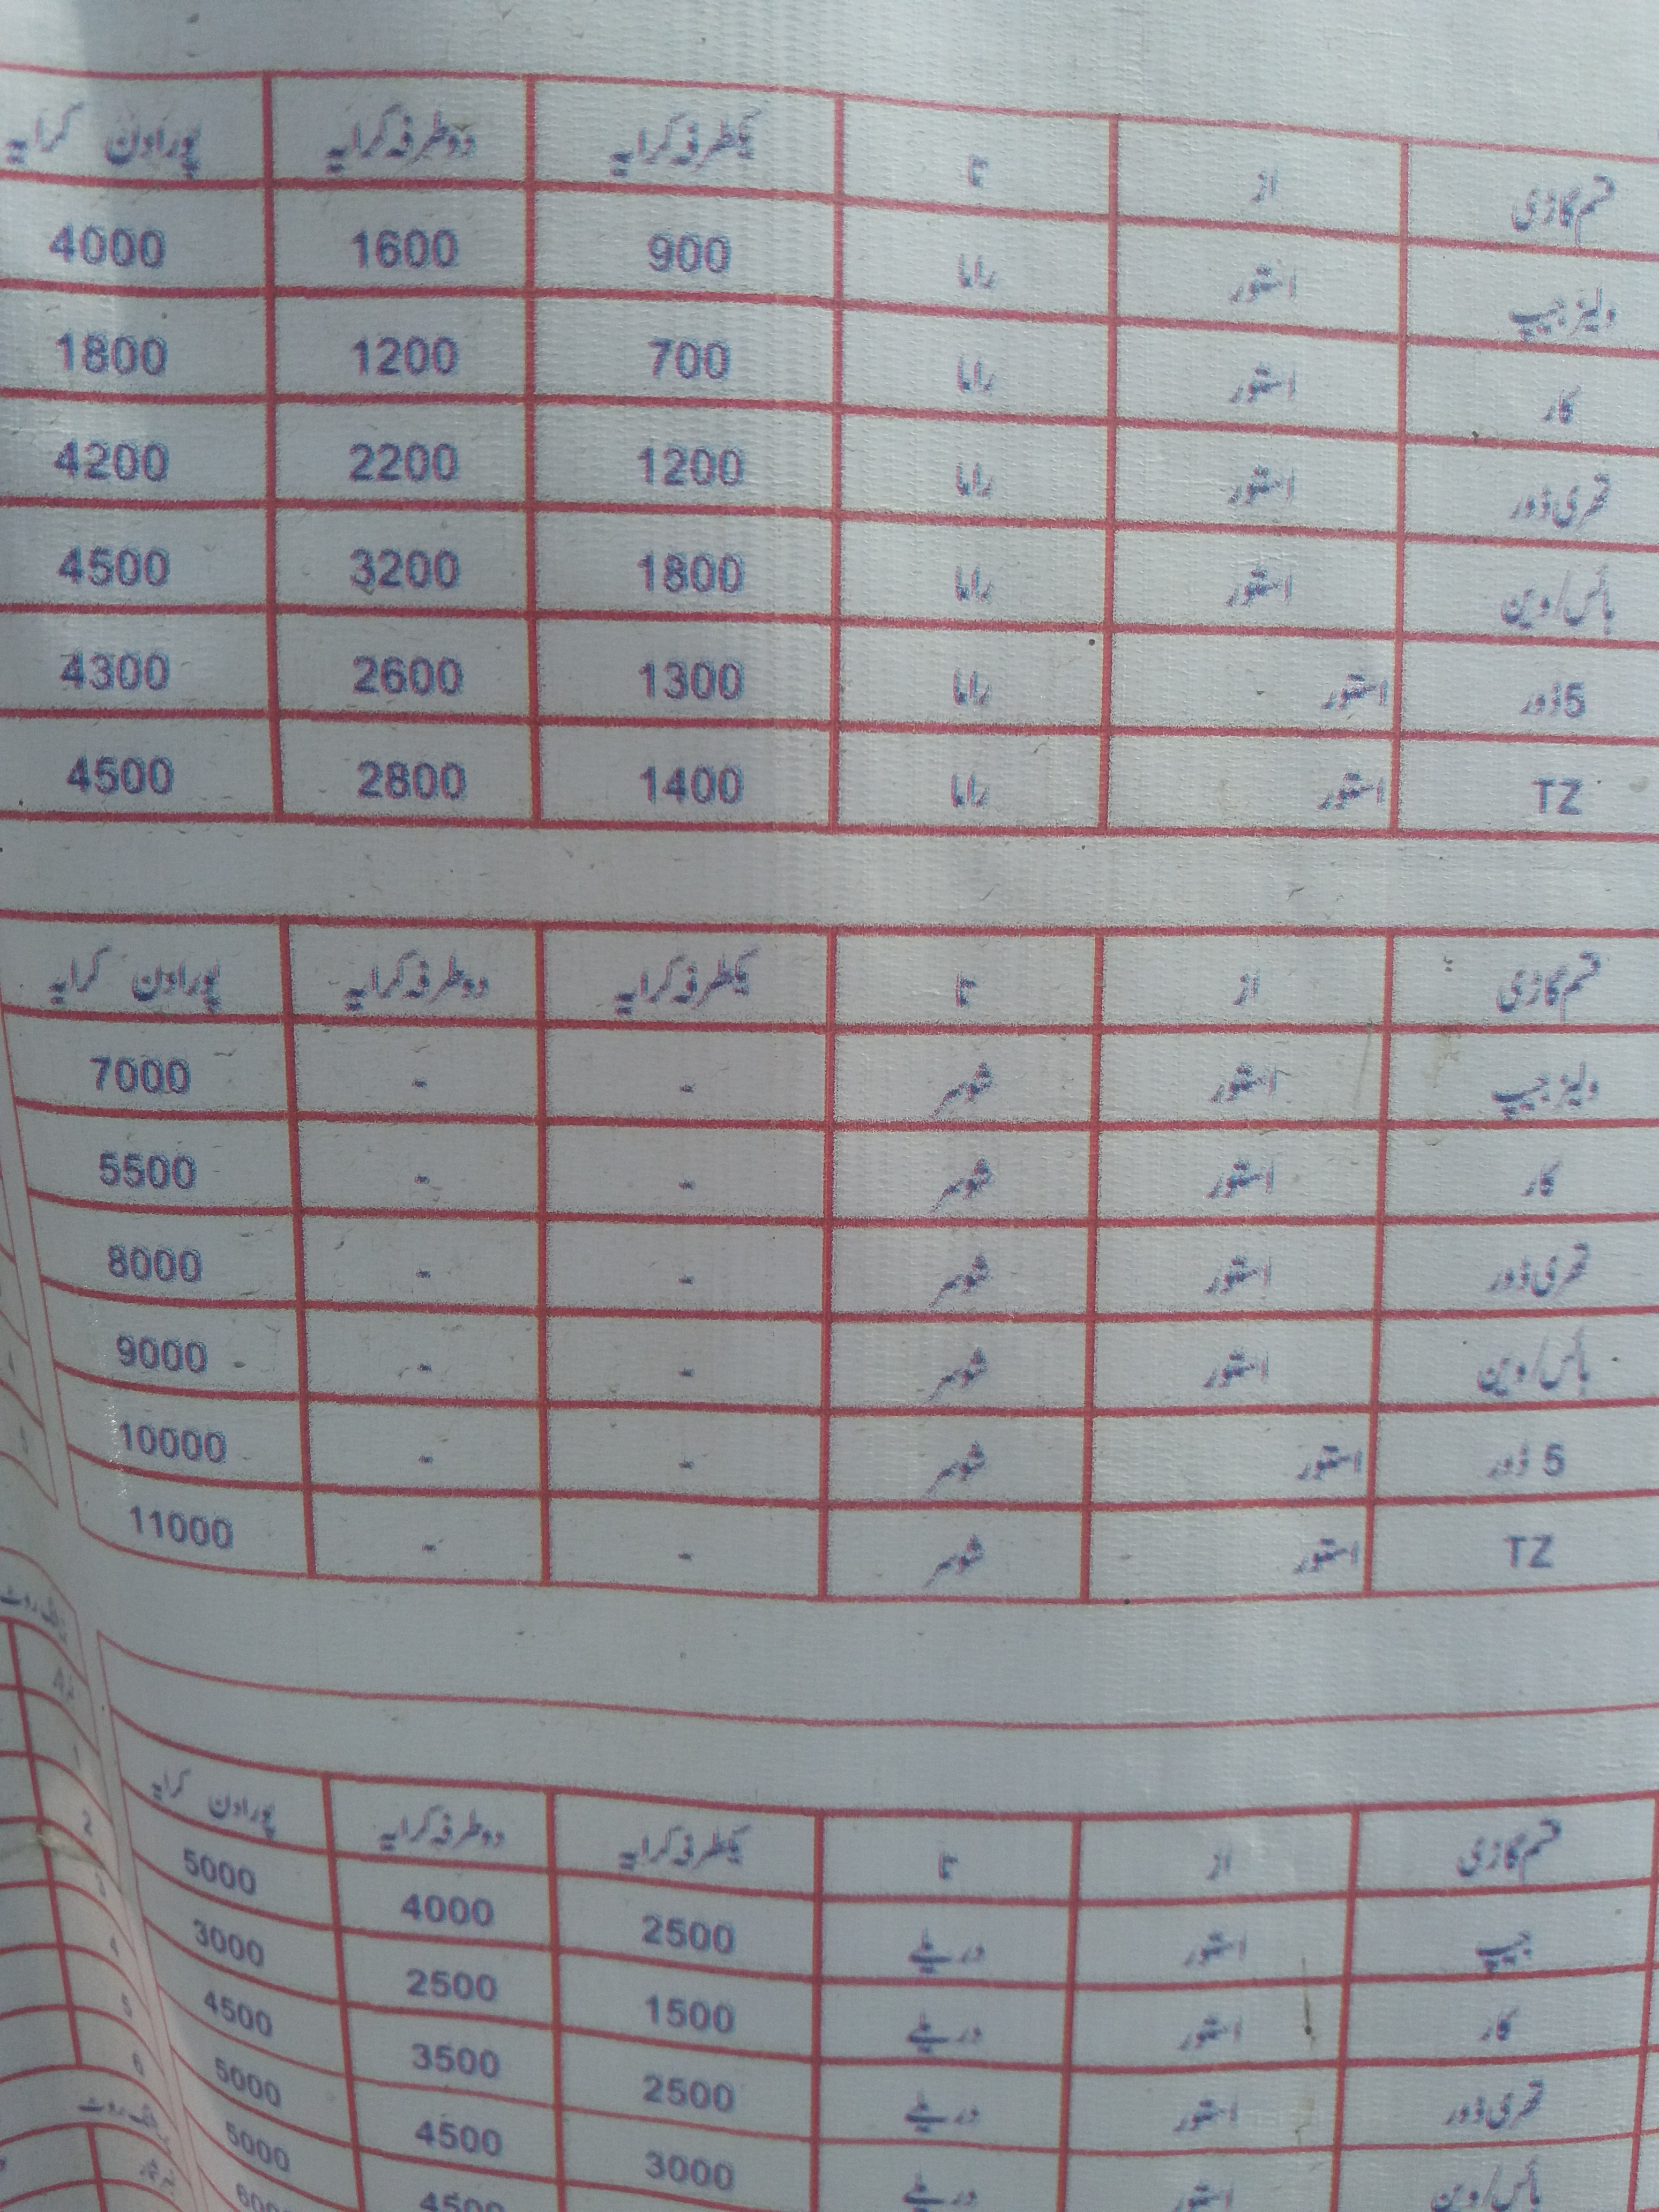 قسم گاڑی از تا یکطرفہ کرایہ دوطرفہ کرایہ پورا دن کرایہ
ویلز جیپ استور راما 900 1600 4000
کار استور راما 700 1200 1800
تھری ڈور استور راما 1200 2200 4200
ہائس/وین استور راما 1800 3200 4500
5 ڈور استور راما 1300 2600 4300
TZ استور راما 1400 2800 4500
قسم گاڑی از تا یکطرفہ کرایہ دوطرفہ کرایہ پورا دن کرایہ
ویلز جیپ استور شونٹر - - 7000
کار استور شونٹر - - 5500
تھری ڈور استور شونٹر - - 8000
ہائس/وین استور شونٹر - - 9000
5 ڈور استور شونٹر - - 10000
TZ استور شونٹر - - 11000
قسم گاڑی از تا یکطرفہ کرایہ دوطرفہ کرایہ پورا دن کرایہ
جیپ استور درلے 2500 4000 5000
کار استور درلے 1500 2500 3000
تھری ڈور استور درلے 2500 3500 4500
ہائس/وین استور درلے 3000 4500 5000
4500 5000
1
2
4
5
6